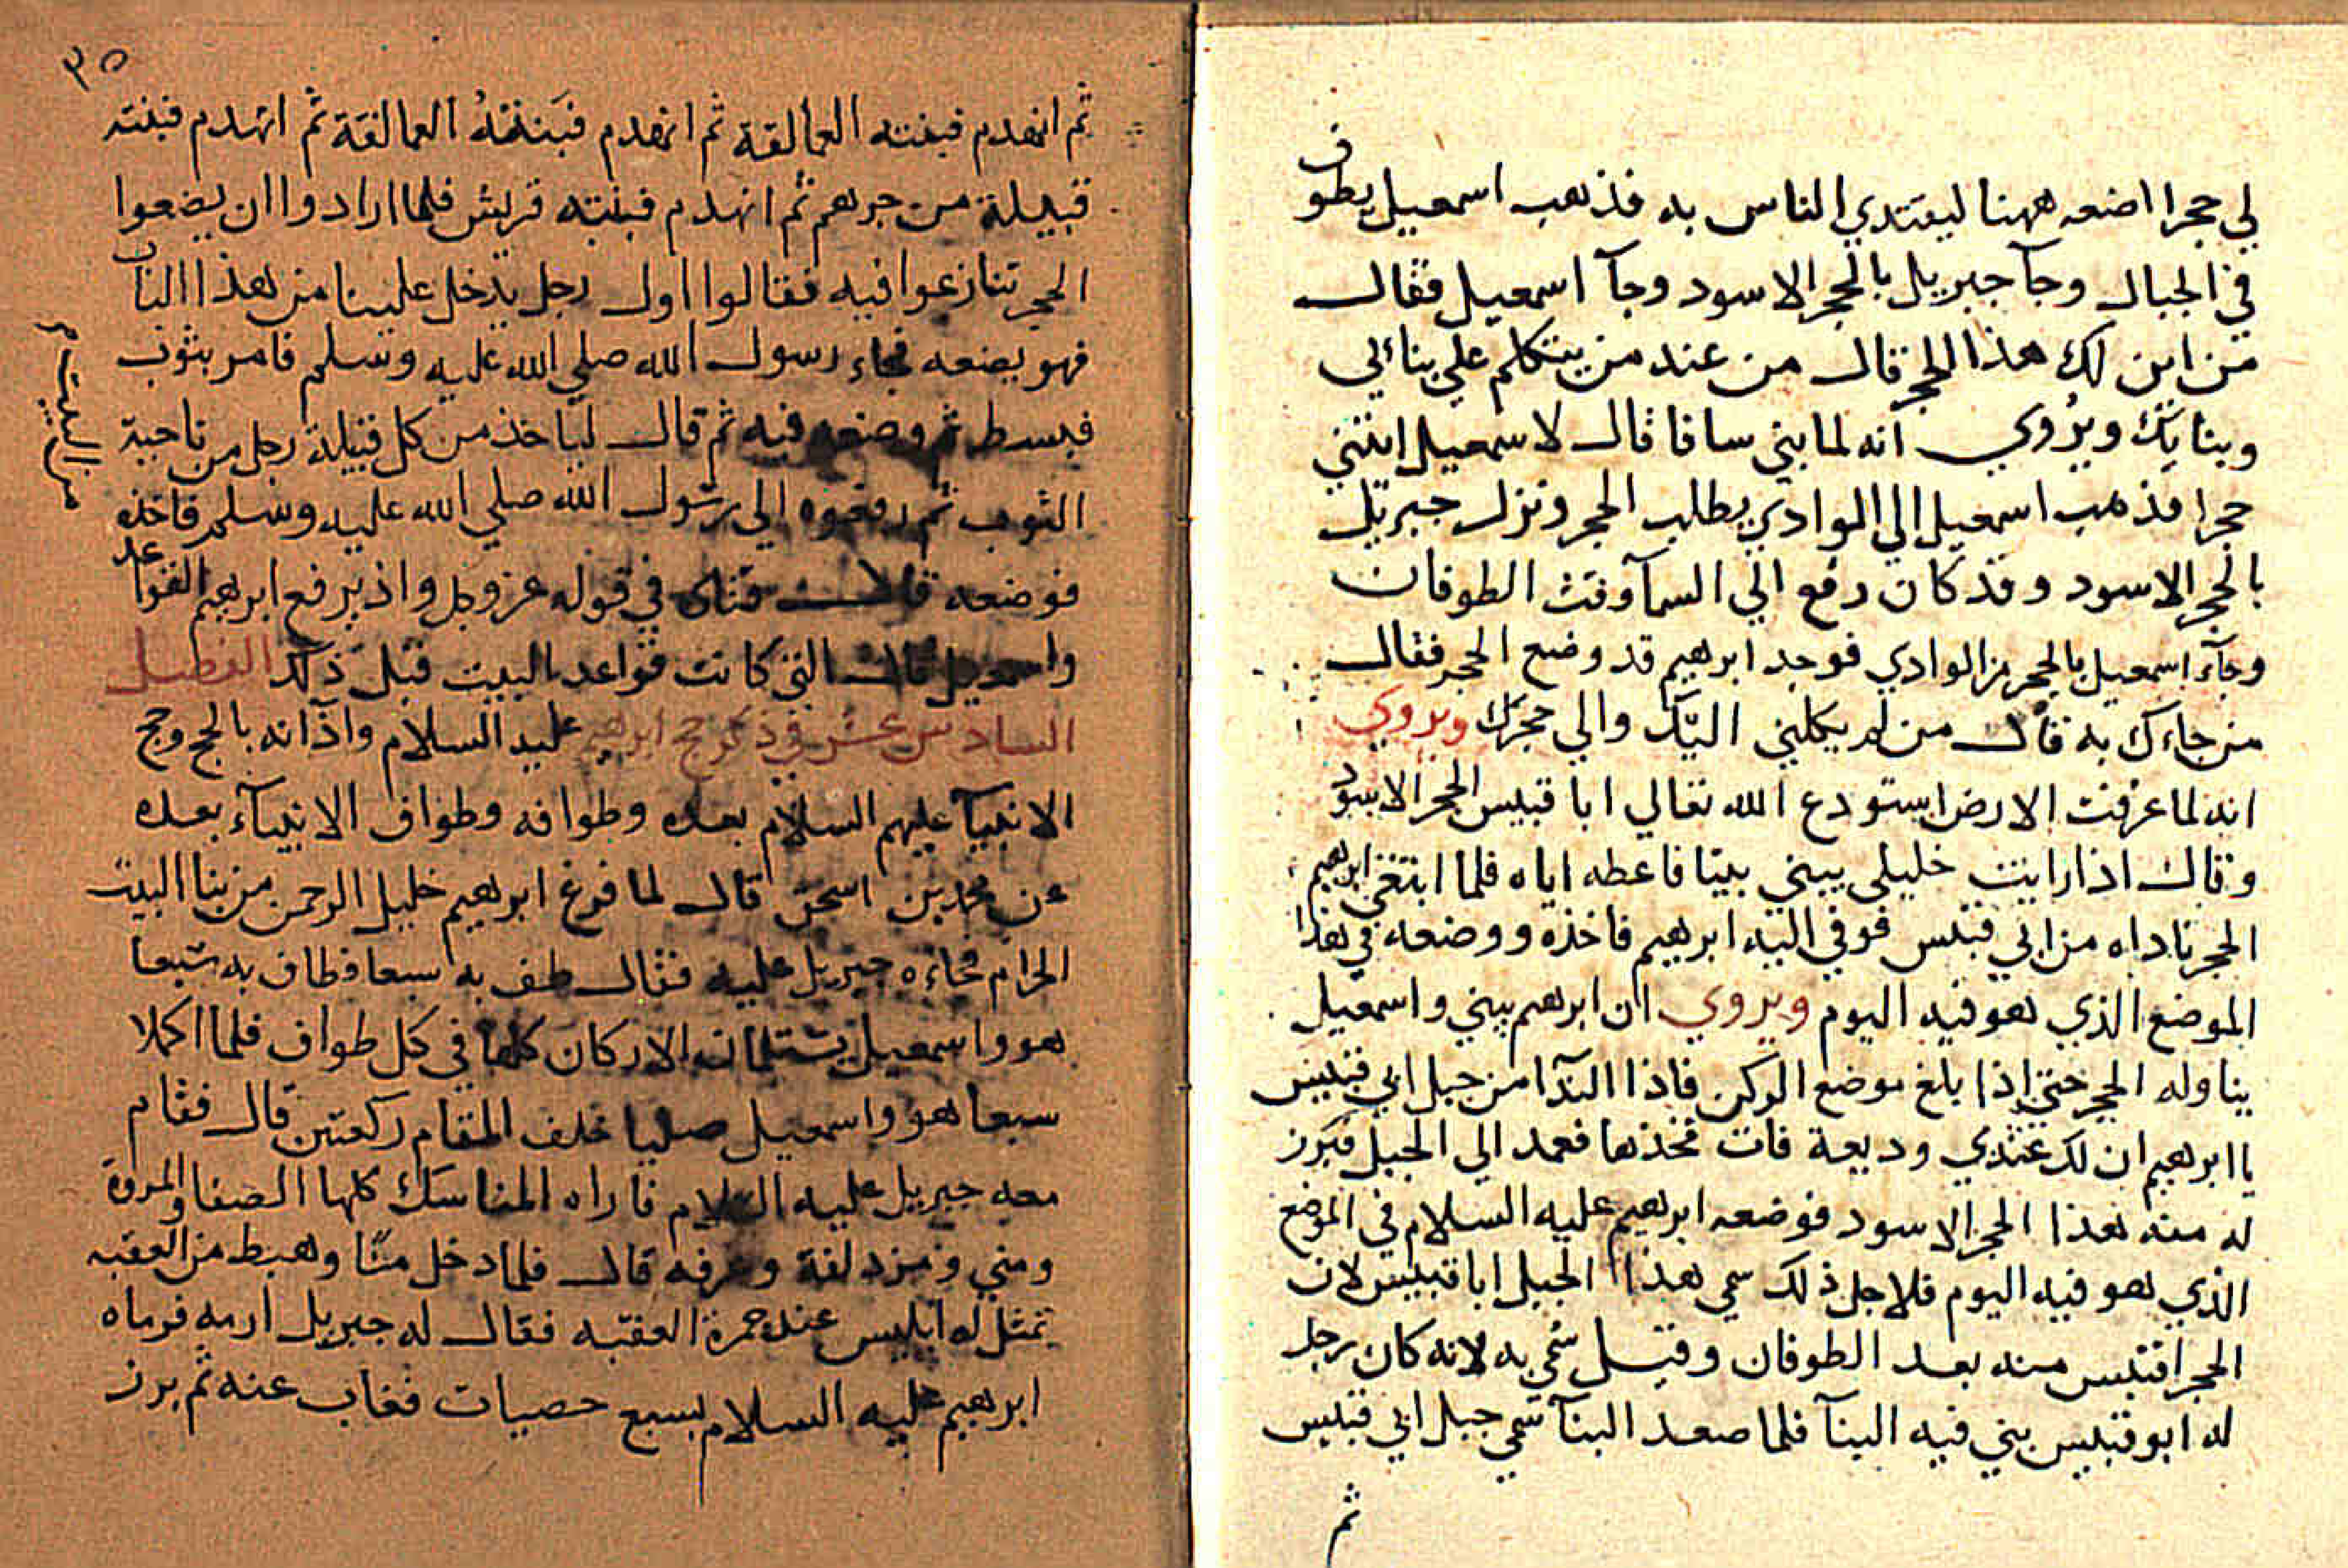 لي حجرا اضعه ههنا ليقتدي الناس به فذهب اسمعيل يطوف
في الجبال وجآ جبريل بالحجر الاسود وجآ اسمعيل فقال
من اين لك هذا الحجر قال من عند من يتكلم علي بنائي
وبنايك ويروي انه لما بني سافا قال لاسمعيل ايتني
حجرا فذهب اسمعيل الي الوادي يطلب الحجر ونزل جبريل
بالحجر الاسود وقد كان رفع الي السمآ وقت الطوفان
وجآء اسمعيل بالحجر من الوادي فوجد ابرهيم قد وضع الحجر فقال
من جاءك به قال من لم يكلني اليك والي حجرك ويروي
انه لما غرقت الارض استودع الله تعالي ابا قبيس الحجر الاسود
وقال اذا رايت خليلي يبني بيتا فاعطه اياه فلما ابتغي ابرهيم
الحجر ناداه من ابي قبيس فوفي اليه ابرهيم فاخذه ووضعه في هذا
الموضع الذي هو فيه اليوم ويروي ان ابرهيم يبني واسمعيل
يناوله الحجر حتي اذا بلغ موضع الركن فاذا الندآ من جبل ابي قبيس
يا ابرهيم ان لك عندي وديعة فات فخذها فعمد الي الجبل فبرز
له منه هذا الحجر الاسود فوضعه ابرهيم عليه السلام في الموضع
الذي هو فيه اليوم فلاجل ذلك سمي هذا الجبل ابا قبيس لان
الحجر اقتبس منه بعد الطوفان وقيل سُمي به لانه كان رجل
له ابو قبيس بني فيه البنآ فلما صعد البنآ سمي جبل ابي قبيس
ثم
٣٥
ثم انهدم فبنته العمالقة ثم انهدم فبنته العمالقة ثم انهدم فبنته
قبيلة من جرهم ثم انهدم فبنته قريش فلما ارادوا ان يضعوا
الحجر تنازعوا فيه فقالوا اول رجل يدخل علينا من هذا الباب
فهو يضعه فجاء رسول الله صلي الله عليه وسلم فامر بثوب
فبسط ثم وضعه فيه ثم قال لياخذ من كل قبيلة رجل من ناحية
من البيت
الثوب ثم رفعوه الي رسول الله صلي الله عليه وسلم فاخذه
فوضعه قال قتادة في قوله عز وجل واذ يرفع ابرهيم القواعد
واسمعيل قال التي كانت قواعد البيت قبل ذلك الفصل
السادس عشر في ذكر حج ابرهيم عليه السلام واذانه بالحج وحج
الانبيآ عليهم السلام بعده وطوافه وطواف الانبيآء بعده
عن محمد بن اسحق قال لما فرغ ابرهيم خليل الرحمن من بنا البيت
الحرام فجاءه جبريل عليه فقال طف به سبعا فطاف به سبعا
هو واسمعيل يستلمان الاركان كلها في كل طواف فلما اكملا
سبعا هو واسمعيل صليا خلف المقام ركعتين قال فقام
معه جبريل عليه السلام فاراه المناسك كلها الصفا والمروة
ومني ومزدلفة وعرفه قال فلما دخل منّا وهبط من العقبه
تمثل له ابليس عند جمرة العقبه فقال له جبريل ارمه فرماه
ابرهيم عليه السلام بسبع حصيات فغاب عنه ثم برز